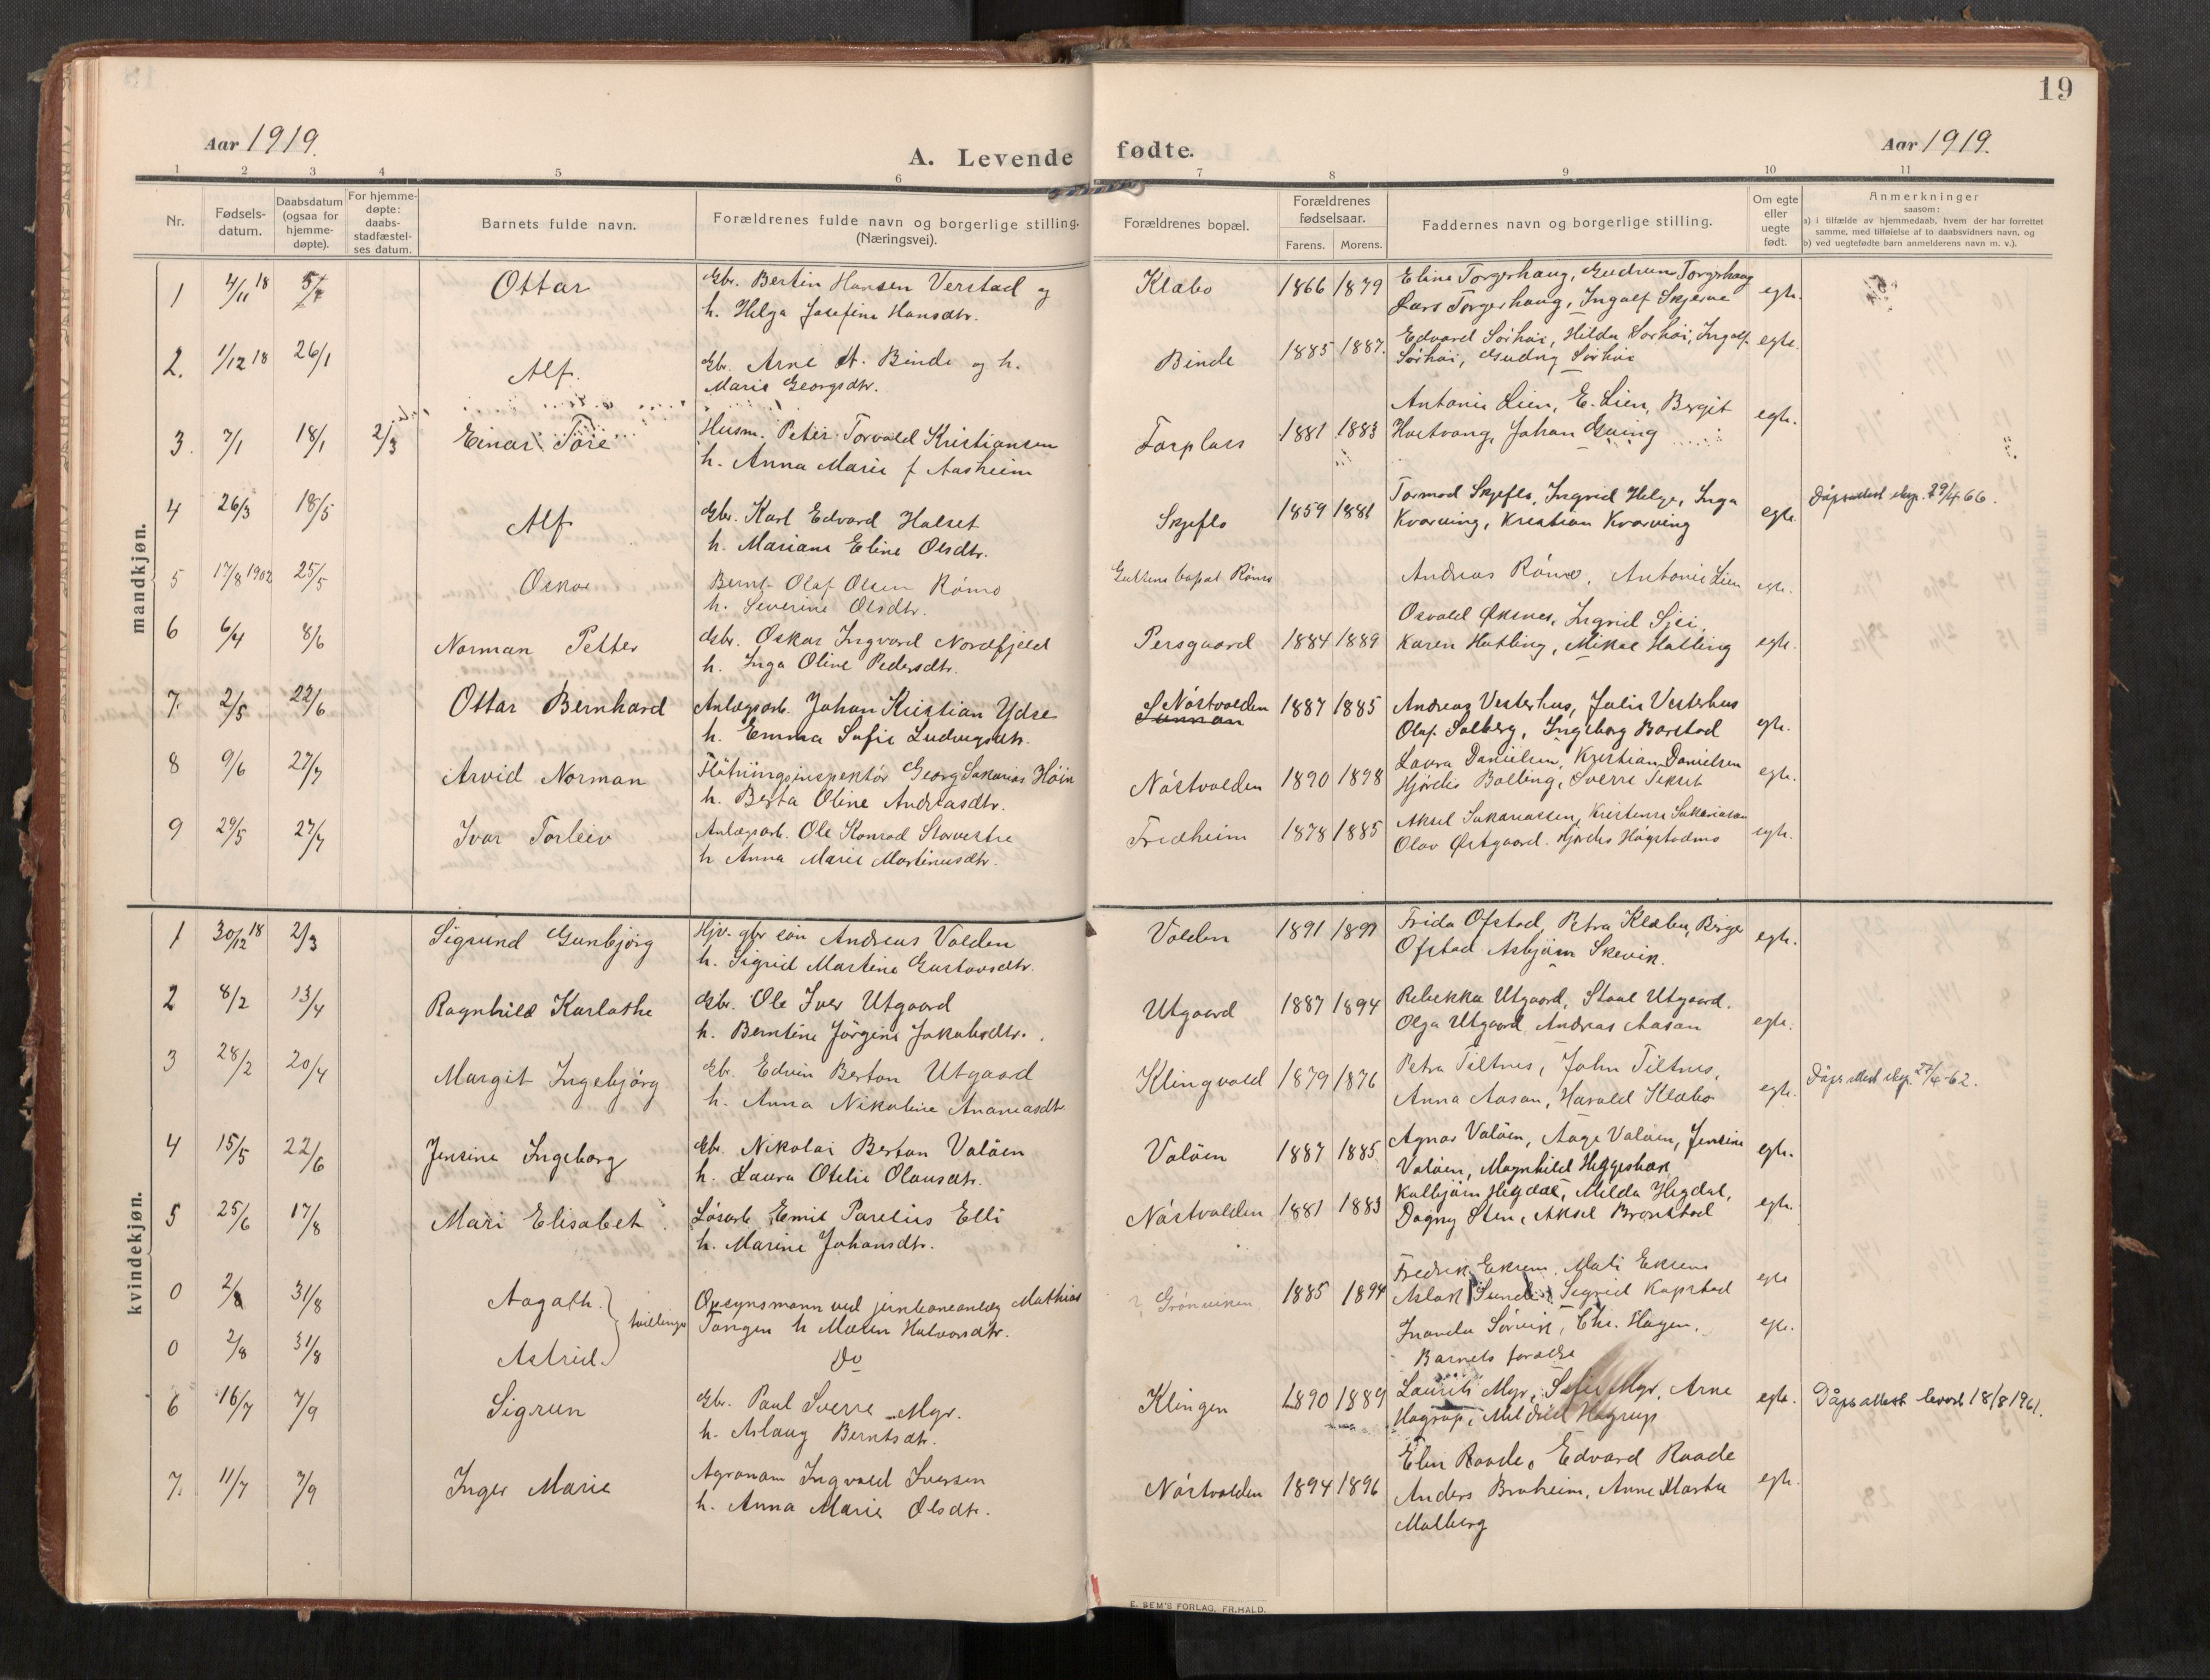 19
Aar 1919.
A. Levende fødte.
Aar 1919.
1 2 3 4 5 6 7 8 9 10 11
Nr.
Fødsels-
datum.
Daabsdatum
(ogsaa for
hjemme-
døpte).
For hjemme-
døpte:
daabs-
stadfæstel-
ses datum.
Barnets fulde navn.
Forældrenes fulde navn og borgerlige stilling.
(Næringsvei).
Forældrenes bopæl.
Forældrenes
fødselsaar.
Farens. Morens.
Faddernes navn og borgerlige stilling.
Om egte
eller
uegte
født.
Anmerkninger
saasom:
a) i tilfælde av hjemmedaab, hvem der har forrettet
samme, med tilføielse af to daabsvidners navn, og
b) ved uegtefødte barn anmelderens navn m. v.).
mandkjøn.
1 4/11 18 Ottar Gbr. Bertin Hansen Verstad og Klæbo 1866 1879 Eline Torgerhaug, Gudrun Torgerhaug egte.
h. Helga Josefine Hansdtr. Lars Torgerhaug, Ingolf Skjerve
2. 1/12 18 26/1 Alf. Gbr. Arne A. Binde og h. Binde 1885 1887. Edvard Sörhöi, Hilda Sörhöi, Ingolf egte.
Marie Georgsdtr. Sörhöi, Gudny Sörhöi
3. 7/1 18/1 2/3 Einar Tore Husm. Peter Torvald Kristiansen Forplass 1881 1883 Antonie Lien, E. Lien, Bergit egte.
h. Anna Marie f Aasheim Hustvang, Johan
4 26/3 18/5 Alf Gbr. Karl Edvard Halset Skjeflo 1859 1881 Tormod Skjeflo, Ingrid Helge, Inga egte. Dåpsattest eksp. 29/4 66.
h. Mariane Eline Olsdtr. Kvarving, Kristian Kvarving
5 17/8 1902 25/5 Oskar Bernt Olaf Olsen Römo Guttens bopæl Römo Andreas Römo, Antonie Lien egte.
h. Severine Olsdtr.
6 6/4 8/6 Norman Petter Gbr. Oskar Ingvard Nordfjeld Persgaard 1884 1889 Osvald Øksnes, Ingrid egte.
h. Inga Oline Pedersdtr. Karen Hatling, Mikal Hatling
7. 2/5 22/6 Ottar Bernhard Anlægsarb. Johan Kristian Ydse Nöstvolden 1887 1885 Andreas Vesterhus, Julie Vesterhus egte.
h. Emma Sofie Ludvigsdtr. Sunnan Olaf Solberg, Ingeborg Barstad
8 9/6 27/7 Arvid Norman Flötningsinspektör Georg Sakarias Höin Nöstvolden 1890 1898 Laura Danielsen, Kristian Danielsen egte.
h. Berta Oline Andreasdtr. Hjördis Bolling, Sverre
9 29/5 27/7 Ivar Torleiv Anlægsarb. Ole Konrad Storvestre Fredheim 1878 1885 Aksel Sakariassen, Kristense Sakariassen egte.
h Anna Marie Martinusdtr. Olav Østgaard. Hjördis Högstadmo
kvindekjøn.
1 30/12 18 2/3 Sigrund Gunbjörg Hjv. gbr sön Andreas Volden Volden 1891 1899 Frida Ofstad, Petra Klæbu, Birger egte.
h. Sigrid Martine Gustavsdtr. Ofstad Asbjörn Skevik.
2 8/2 13/4 Ragnhild Karlathe Gbr. Ole Iver Utgaard Utgaard 1887 1894 Rebekka Utgaard, Staal Utgaard. egte.
h. Berntine Jörgine Jakobsdtr. Olga Utgaard Andreas Aasan
3 28/2 20/4 Margit Ingebjörg Gbr. Edvin Berton Utgaard Klingvold 1879 1876 Petra Tiltnes, John Tiltnes, egte. Dåpsattest eksp. 27/4-62.
h. Anna Nikoline Ananiasdtr Anna Aasan, Harald Klæbo
4 15/5 22/6 Jensine Ingeborg Gbr. Nikolai Berton Valöen Valöen 1887 1885 Agnar Valöen, Aage Valöen, Jensine egte.
h. Laura Otelie Olausdtr. Valöen, Magnhild
5 25/6 17/8 Mari Elisabet Lösarb Emil Parelius Elli Nöstvolden 1881 1883 Kolbjörn Hegdal, Milda Hegdal, egte.
h. Marine Johansdtr. Dagny Sten, Aksel Bronstad
0 2/8 31/8 Aagoth. tvillinger Opsynsmann ved jernbaneanlæg Mathias ? Grönviken 1885 1894 Fredrik Eksem, Mali Eksem egte
Tangen h Maren Halvorsdtr. Aslak Sigrid Kapstad
0 2/8 31/8 Astrid. Do Sörvik, Chr. Hagen, egte.
Barnets forældre
6 16/7 7/9 Sigrun Gbr. Paul Sverre Myr. Klingen 1890 1889 Laurits Myr, Sofie Myr, Arne egte. Dåpsattest levert 18/8 1961.
h. Aslaug Berntsdtr. Hagrup, Mildrid Hagrup
7. 11/7 7/9 Inger Marie Agronom Ingvald Iversen Nöstvolden 1894 1896 Elin Raade, Edvard Raade egte.
h. Anna Marie Olsdtr. Anders Braheim, Anne Marta
Malberg
E. SEM'S FORLAG, FR.HALD.